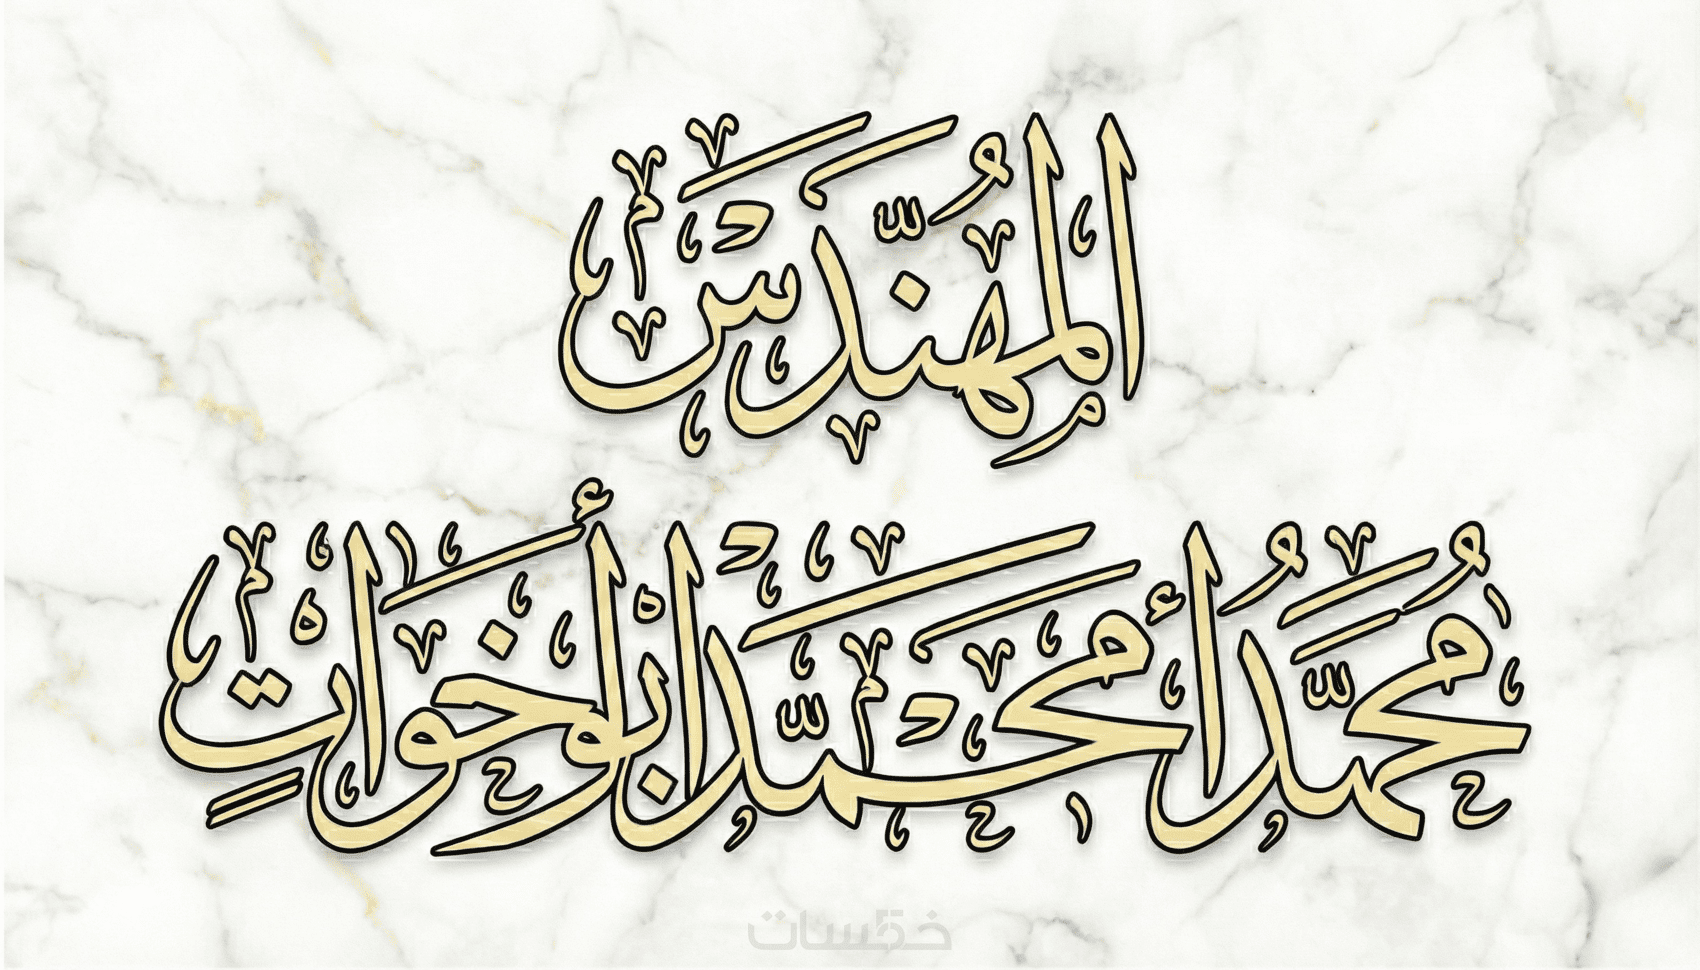 المُهَنّدَس
مُحَمّدُ أمحمّد ابوأخَواتٍ
خمسات